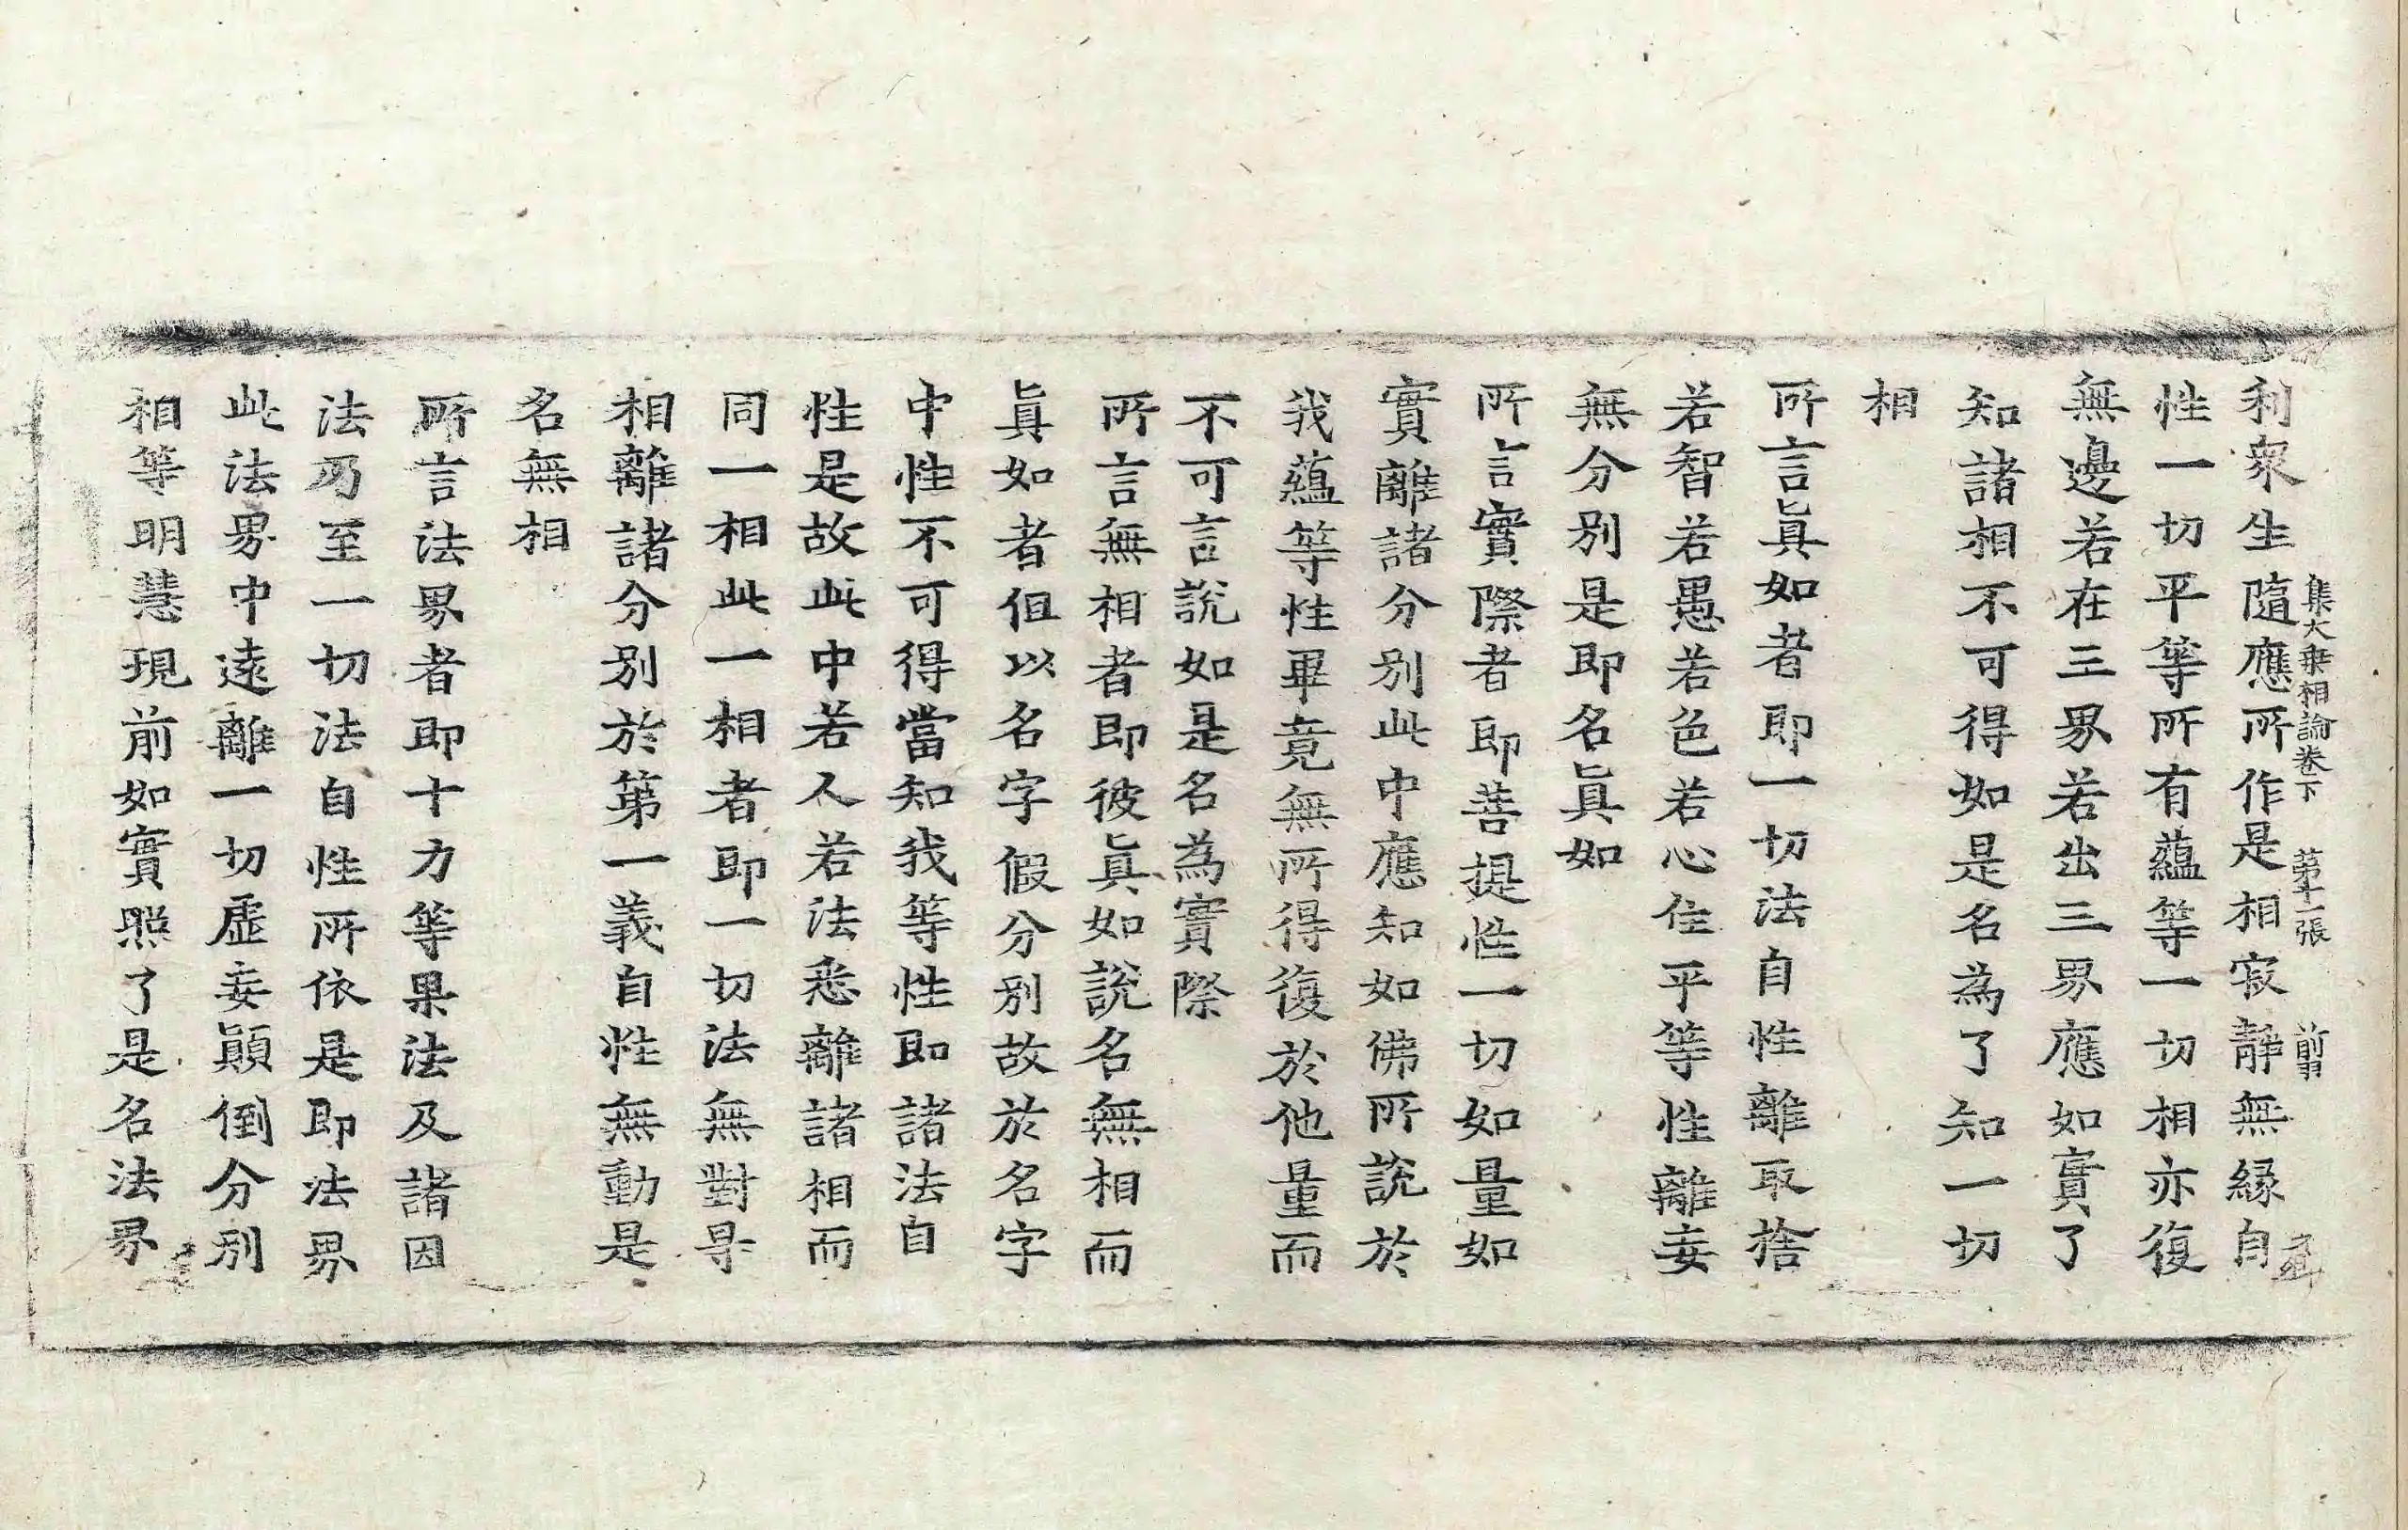 集大乗相論卷下 第十一張 前
利衆生隨應所作是相寂靜無縁自
性一切平等所有蘊等一切相亦復
無邊若在三界若出三界應如實了
知諸相不可得如是名為了知一切
相
所言眞如者即一切法自性離取捨
若智若愚若色若心住平等性離妄
無分别是即名眞如
所言實際者即菩提性一切如量如
實離諸分别此中應知如佛所說於
我蘊等性畢竟無所得復於他量而
不可言說如是名為實際
所言無相者即彼眞如說名無相而
眞如者但以名字假分别故於名字
中性不可得當知我等性即諸法自
性是故此中若人若法悉離諸相而
同一相此一相者即一切法無對㝵
相離諸分别於第一義自性無動是
名無相
所言法界者即十力等果法及諸因
法乃至一切法自性所依是即法界
此法界中遠離一切虛妄顚倒分别
相等明慧現前如實照了是名法界